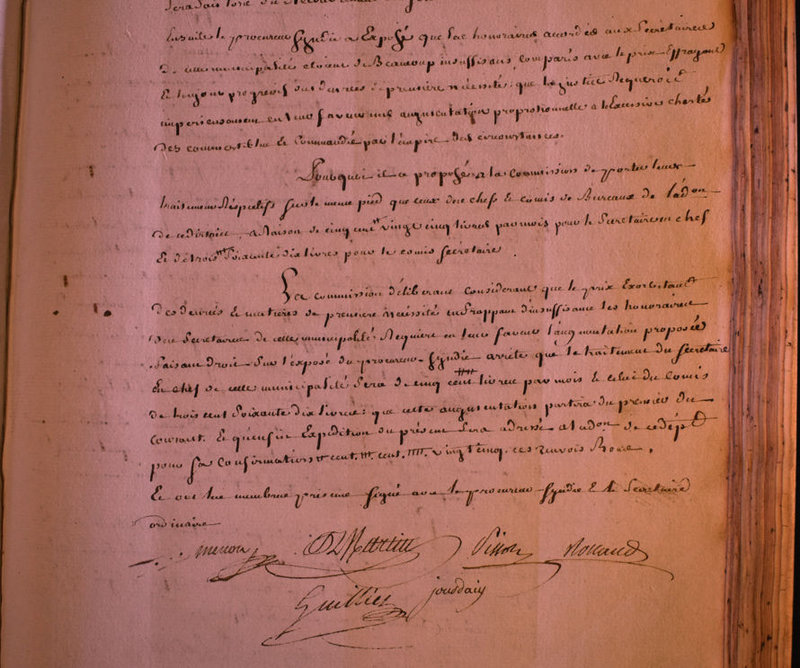 Ensuite le procureur syndic a Exposé que les honoraires accordés aux Secretaires
De cette municipalité etoient de Beaucoup insuffisans, Comparés avec le prix Effrayant
Et toujours progressif des denrées de premiere necessité; que la justice Requeroit
imperieusement en leur faveur une augmentation proportionnelle a l'excessive cherté
Des comestibles Et Commandée par l'empire des circonstances.
Pourquoi il a proposé a la Commission de porter leurs
traitemens Respectifs sur le meme pied que ceux des chefs & comis de Bureaux de l'adon
de ce district, a Raison de cinq cent vingt cinq livres par mois pour le Secretaire en chef
Et de trois cent soixante dix livres pour le comis secretaire.
La commission déliberant Considerant que le prix Exorbitant
Des denrées & matieres de premiere necessité en frappant d'insuffisance les honoraires
Des Secretaires de cette municipalité Requiert en leur faveur l'augmentation proposée
faisant Droit sur l'exposé du procureur syndic arrête que le traitement du Secretaire
En chef de cette municipalité sera de cinq cent livres par mois & celui du Comis
de trois cent soixante dix livres; que cette augmentation partira du premier du
Courant. Et qu'enfin Expedition du présent sera adressée a l'adon de ce dépt
pour sa Confirmation vingt cinq, ces renvois
Et ont les membres présens signé avec le procureur syndic & le Secretaire
ordinaire
menon Martin Pisson Rolland
Guillier jourdain